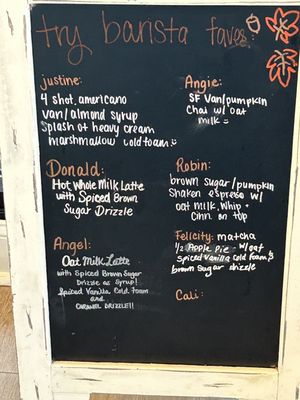 try barista faves:
justine:
4 shot, americano
van/almond syrup
Splash of heavy cream
marshmallow cold foam
Donald:
Hot Whole Milk Latte
with Spiced Brown
Sugar Drizzle
Angel:
Oat Milk Latte
with Spiced Brown Sugar
Drizzle as Syrup!
Spiced Vanilla Cold Foam
and
CARAMEL DRIZZLE!!
Angie:
SF Van/pumpkin
Chai w/ oat
milk
Robin:
brown sugar/pumpkin
Shaken espresso w/
oat milk, Whip +
Cinn on top
Felicity: matcha
1/2 Apple Pie - w/ oat
spiced vanilla cold foam &
brown sugar drizzle
Cali: